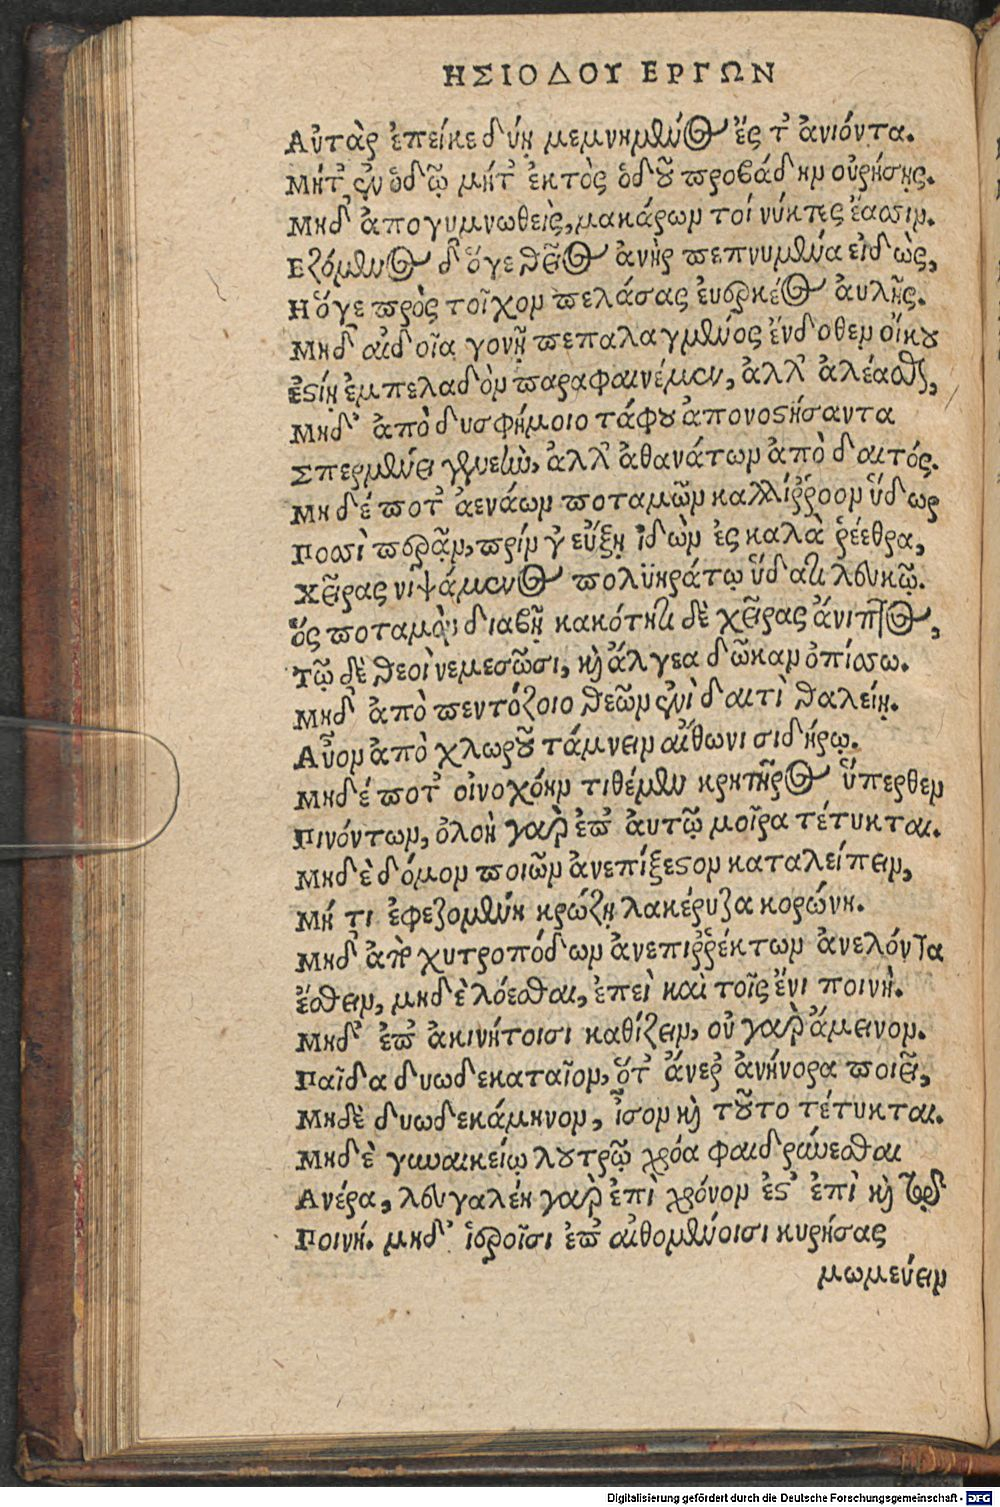 ΗΣΙΟΔΟΥ ΕΡΓΩΝ
Αὐτὰρ ἐπείκε δύῃ μεμνημένος ἔς τ' ἀνιόντα.
Μήτ' ἐν ὁδῷ μήτ' ἐκτὸς ὁδοῦ προβάδην οὐρήσῃς.
Μηδ' ἀπογυμνωθεὶς, μακάρων τοί νύκτες ἔασιν.
Εζόμενος δ' ὅγε θεῖος ἀνὴρ πεπνυμένα εἰδὼς,
Η ὅγε πρὸς τοῖχον πελάσας ἐυερκέος ἀυλῆς.
Μηδ' αἰδοῖα γονῇ πεπαλαγμένος ἔνδοθεν οἴκου
ἐστίῃ ἐμπελαδὸν παραφαινέμεν, ἀλλ' ἀλέασθαι,
Μηδ' ἀπὸ δυσφήμοιο τάφου ἀπονοστήσαντα
Σπερμαίνειν γενεὴν, ἀλλ' ἀθανάτων ἀπὸ δαιτός.
Μηδέ ποτ' ἀενάων ποταμῶν καλλίῤῥοον ὕδωρ
Ποσσὶ περᾷν, πρίν γ' εὔξῃ ἰδὼν ἐς καλὰ ῥέεθρα,
Χεῖρας νιψάμενος πολϋηράτῳ ὕδατι λευκῷ.
ὅς ποταμὸν διαβῇ κακότητι δὲ χεῖρας ἄνιπτος,
Τῷ δὲ θεοὶ νεμεσῶσι, καὶ ἄλγεα δῶκαν ὀπίσσω.
Μηδ' ἀπὸ πεντόζοιο θεῶν ἐνὶ δαιτὶ θαλείῃ.
Αὖον ἀπὸ χλωροῦ τάμνειν αἴθωνι σιδήρῳ.
Μηδέ ποτ' οἰνοχόην τιθέμεν κρητῆρος ὕπερθεν
Πινόντων, ὀλοὴ γὰρ ἐπ' ἀυτῷ μοῖρα τέτυκται.
Μηδὲ δόμον ποιῶν ἀνεπίξεστον καταλείπειν,
Μή τι ἐφεζομένη κρώζῃ λακέρυζα κορώνη.
Μηδ' ἀπὸ χυτροπόδων ἀνεπιῤῥέκτων ἀνελόντα
ἔσθειν, μηδὲ λόεσθαι, ἐπεὶ καὶ τοῖς ἔνι ποινὴ.
Μηδ' ἐπ' ἀκινήτοισι καθίζειν, οὐ γὰρ ἄμεινον.
Παῖδα δυωδεκαταῖον, ὅτ' ἄνερ' ἀνήνορα ποιεῖ,
Μηδὲ δυωδεκάμηνον, ἶσον καὶ τοῦτο τέτυκται.
Μηδὲ γυναικείῳ λουτρῷ χρόα φαιδρύνεσθαι
Ανέρα, λευγαλέη γὰρ ἐπὶ χρόνον ἐστ' ἐπὶ καὶ τῷδε
Ποινή. μηδ' ἱεροῖσι ἐπ' αἰθομένοισι κυρήσας
μωμεύειν
Digitalisierung gefördert durch die Deutsche Forschungsgemeinschaft - DFG